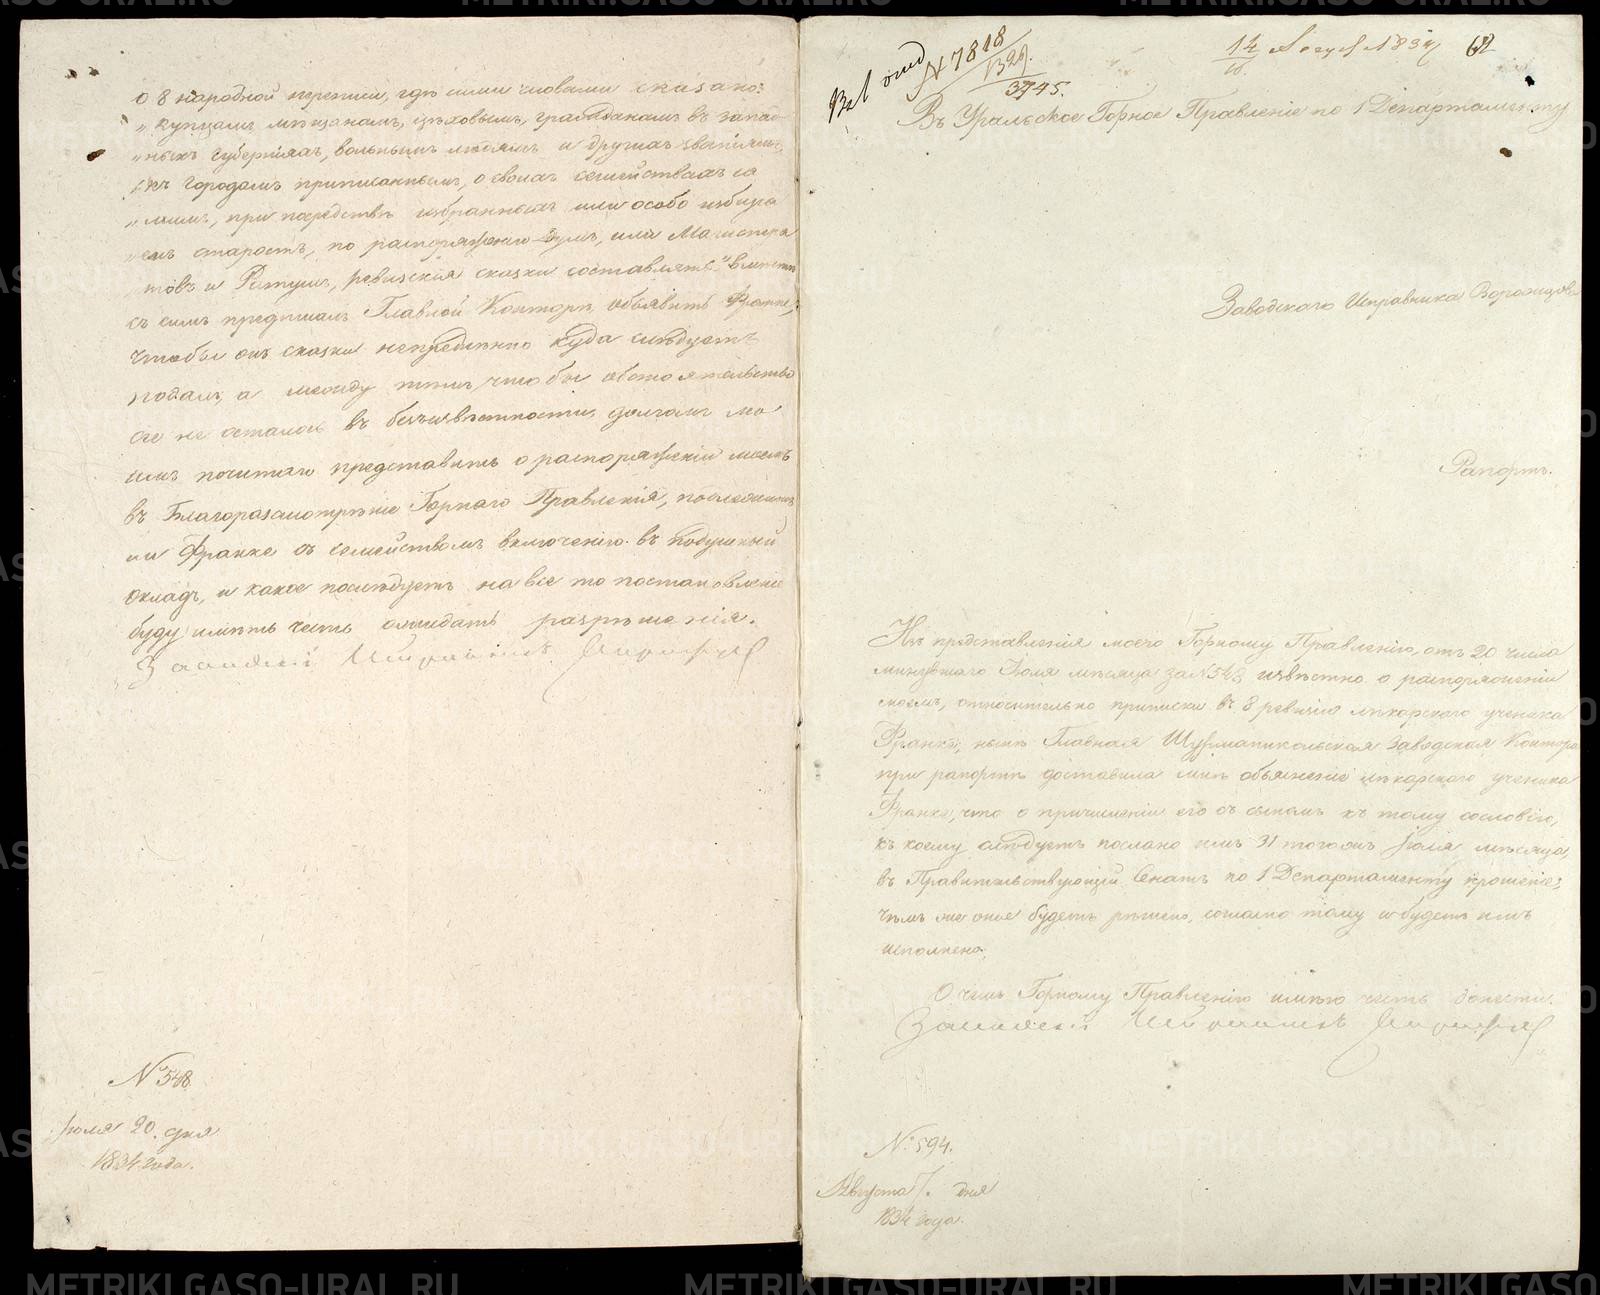 о 8 народной переписи, гдѣ сими словами сказано:
„Купцамъ мѣщанамъ, цѣховымъ, гражданамъ въ запад-
„ныхъ губернiяхъ, вольнымъ людямъ и другихъ званiямъ,
„къ городамъ приписаннымъ, о своихъ семействахъ са
„мимъ, при посредствѣ избранныхъ или особо избира
„емъ старостъ, по распоряженiю думъ, или Магистра
„товъ и Ратушъ, ревизскiя сказки составлять“ вмѣстѣ
съ симъ предписалъ Главной Конторѣ объявить Франке,
чтобы онъ сказки непремѣнно куда слѣдуетъ
подалъ, а между тѣмъ, чтобы обстоятельство
сiе не осталось въ безъизвѣстности, долгомъ мо
имъ почитаю представить о распоряженiи моемъ
въ Благоразсмотрѣнiе Горнаго Правленiя, подлежитъ
ли Франке съ семействомъ включенiю въ подушный
окладъ, и какое послѣдуетъ на все то постановленiе
буду имѣть честь ожидать разрѣшенiя.
Заводскiй Исправникъ
№ 548
Iюля 20 дня
1834 года.
№ 7818
3745.
14 Авгус 1834
62
Въ Уральское Горное Правленiе по 1 Департаменту
Заводскаго Исправника
Рапортъ.
Изъ представленiя моего Горному Правленiю, отъ 20 числа
минувшаго Iюля мѣсяца за № 548 извѣстно о распоряженiи
моемъ, относительно приписки въ 8 ревизiю лѣкарского ученика
Франке, нынѣ Главная Шурманикольская Заводская Контора
при рапортѣ доставила мнѣ объясненiе лѣкарского ученика
Франке, что о причисленiи его съ сыномъ къ тому сословiю,
къ коему слѣдуетъ послано имъ 31 того жъ Iюля мѣсяца,
въ Правительствующiй Сенатъ по 1 Департаменту прошенiе;
чѣмъ же оное будетъ рѣшено, согласно тому и будетъ имъ
исполнено.
О чемъ Горному Правленiю имѣю честь донести.
Заводскiй Исправникъ
№ 594.
Августа 7. дня
1834 года.
METRIKI.GASO-URAL.RU